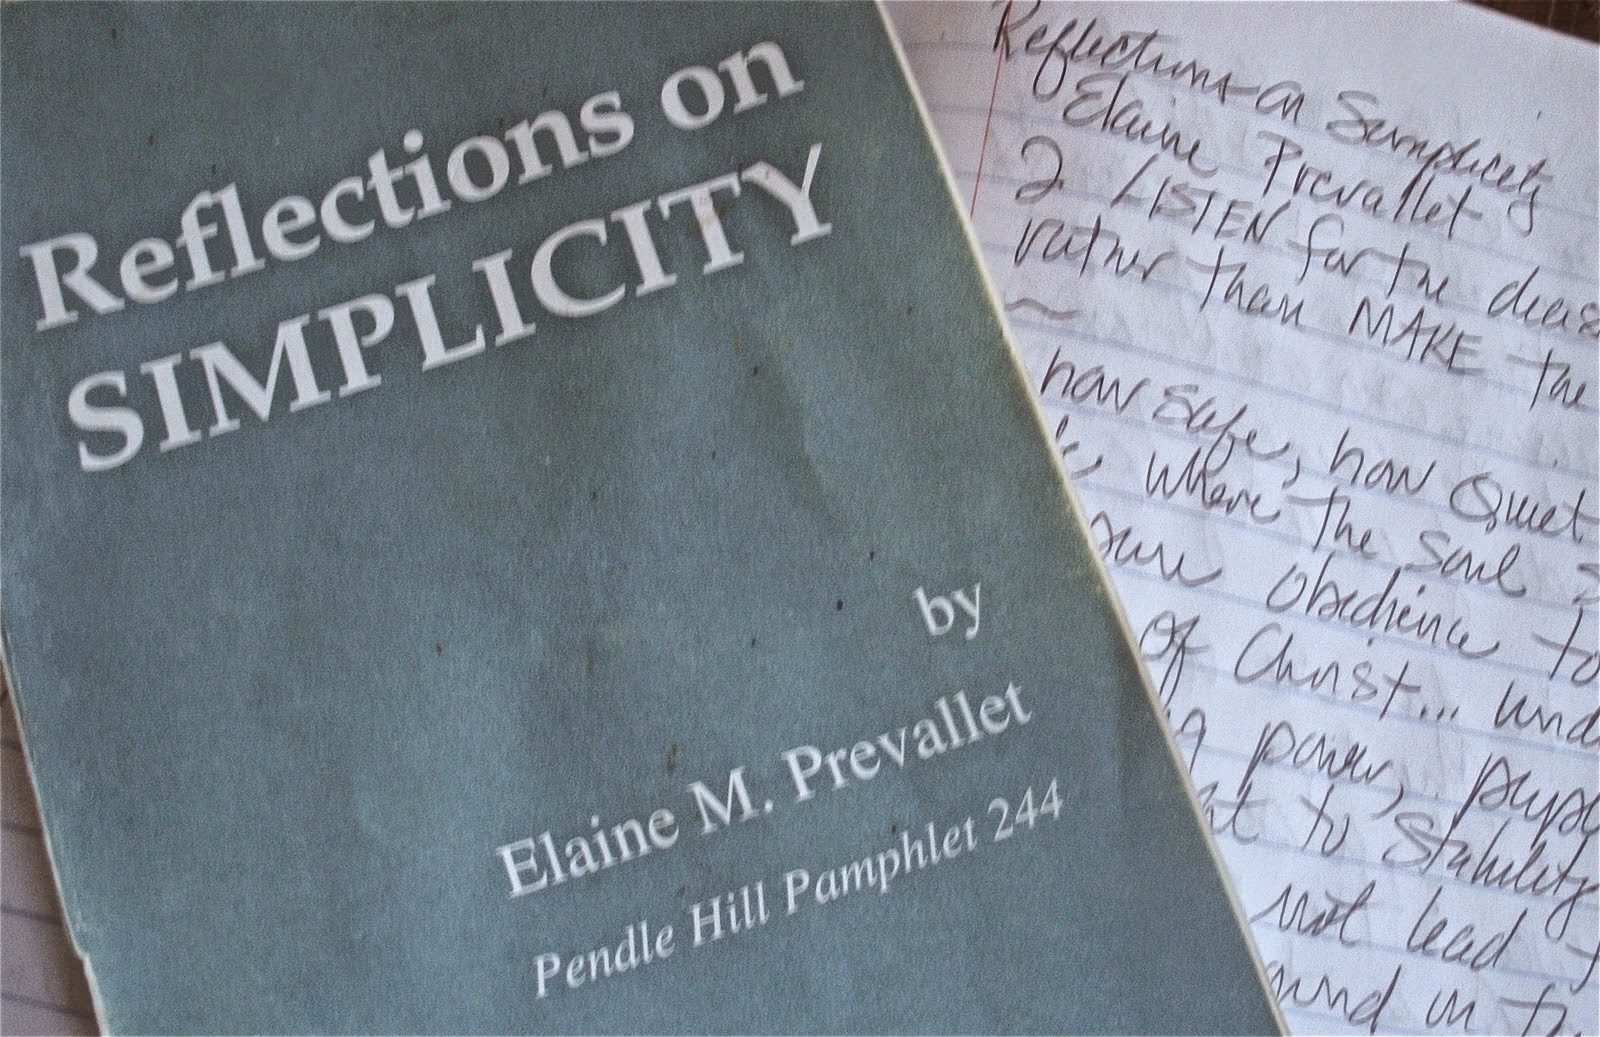 Reflections on
SIMPLICITY
by
Elaine M. Prevallet
Pendle Hill Pamphlet 244
Reflections on Simplicity
Elaine Prevallet
2 LISTEN for the
rather than MAKE the
~
how safe, how Quiet
where the soul
obedience to
of Christ... und
power, peop
to stability
not lead
in